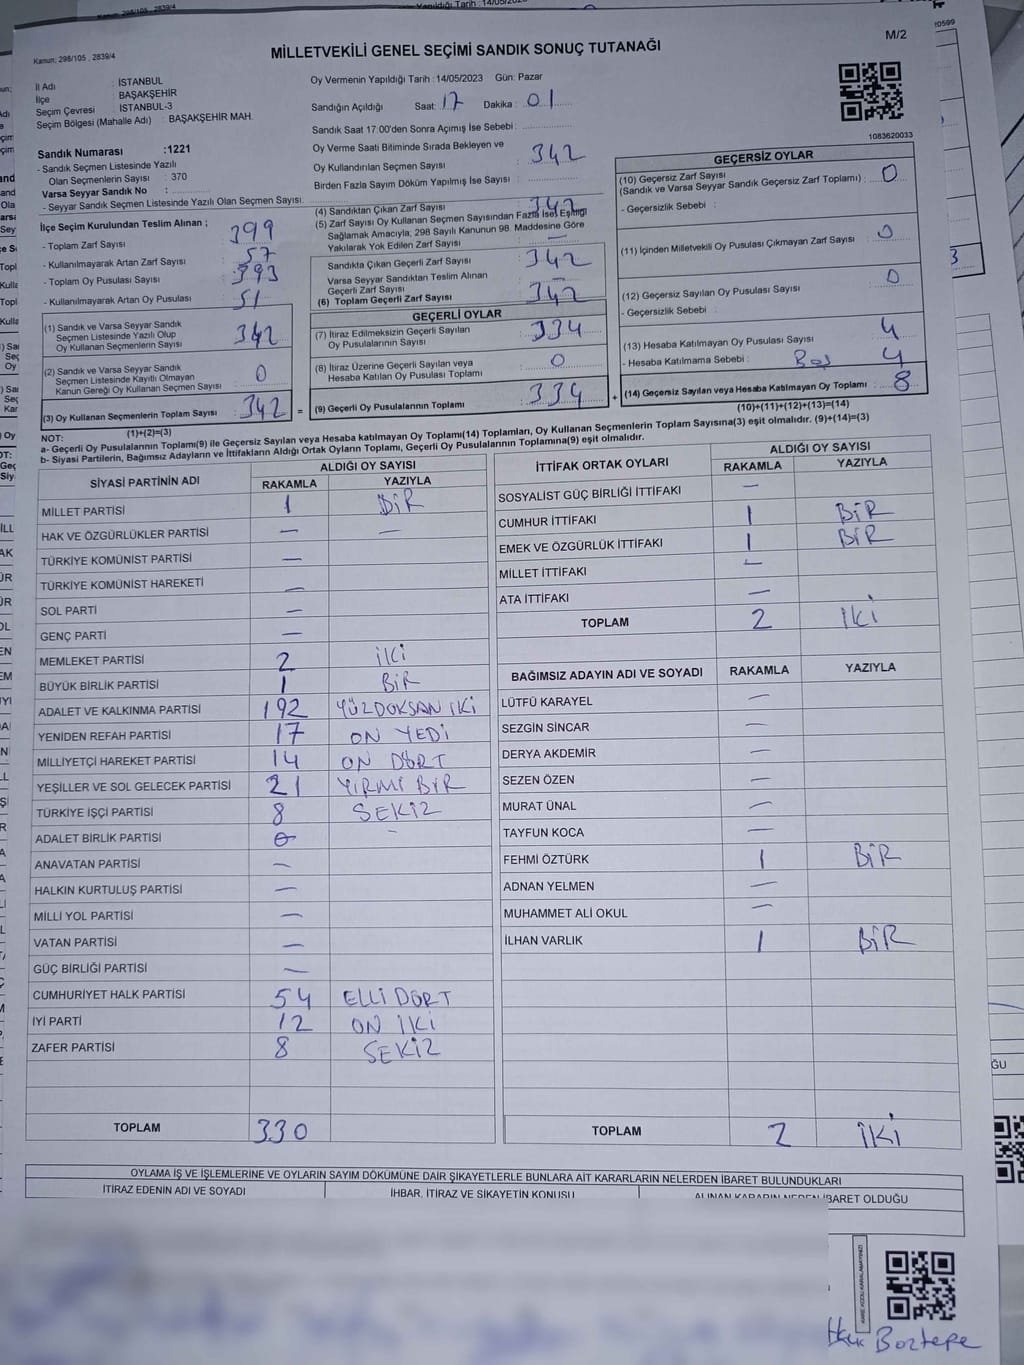 Kanun: 298/105 , 2839/4
M/2
MİLLETVEKİLİ GENEL SEÇİMİ SANDIK SONUÇ TUTANAĞI
İl Adı : İSTANBUL
İlçe : BAŞAKŞEHİR
Seçim Çevresi : İSTANBUL-3
Seçim Bölgesi (Mahalle Adı) : BAŞAKŞEHİR MAH.
Sandık Numarası :1221
- Sandık Seçmen Listesinde Yazılı
Olan Seçmenlerin Sayısı : 370
Varsa Seyyar Sandık No :
- Seyyar Sandık Seçmen Listesinde Yazılı Olan Seçmen Sayısı:
Oy Vermenin Yapıldığı Tarih :14/05/2023 Gün: Pazar
Sandığın Açıldığı Saat: 17 Dakika : 01
Sandık Saat 17:00'den Sonra Açımış İse Sebebi :
Oy Verme Saati Bitiminde Sırada Bekleyen ve
Oy Kullandırılan Seçmen Sayısı : 342
Birden Fazla Sayım Döküm Yapılmış İse Sayısı :
1083620033
İlçe Seçim Kurulundan Teslim Alınan ;
- Toplam Zarf Sayısı : 399
- Kullanılmayarak Artan Zarf Sayısı : 57
- Toplam Oy Pusulası Sayısı : 393
- Kullanılmayarak Artan Oy Pusulası : 51
(1) Sandık ve Varsa Seyyar Sandık
Seçmen Listesinde Yazılı Olup
Oy Kullanan Seçmenlerin Sayısı : 342
(2) Sandık ve Varsa Seyyar Sandık
Seçmen Listesinde Kayıtlı Olmayan
Kanun Gereği Oy Kullanan Seçmen Sayısı : 0
(3) Oy Kullanan Seçmenlerin Toplam Sayısı : 342
(1)+(2)=(3)
(4) Sandıktan Çıkan Zarf Sayısı : 342
(5) Zarf Sayısı Oy Kullanan Seçmen Sayısından Fazla İse, Eşitliği
Sağlamak Amacıyla, 298 Sayılı Kanunun 98. Maddesine Göre
Yakılarak Yok Edilen Zarf Sayısı : —
Sandıkta Çıkan Geçerli Zarf Sayısı : 342
Varsa Seyyar Sandıktan Teslim Alınan
Geçerli Zarf Sayısı : —
(6) Toplam Geçerli Zarf Sayısı : 342
GEÇERLİ OYLAR
(7) İtiraz Edilmeksizin Geçerli Sayılan
Oy Pusulalarının Sayısı : 334
(8) İtiraz Üzerine Geçerli Sayılan veya
Hesaba Katılan Oy Pusulası Toplamı : 0
= (9) Geçerli Oy Pusulalarının Toplamı : 334
GEÇERSİZ OYLAR
(10) Geçersiz Zarf Sayısı
(Sandık ve Varsa Seyyar Sandık Geçersiz Zarf Toplamı) : 0
- Geçersizlik Sebebi :
(11) İçinden Milletvekili Oy Pusulası Çıkmayan Zarf Sayısı : 0
(12) Geçersiz Sayılan Oy Pusulası Sayısı : 0
- Geçersizlik Sebebi :
(13) Hesaba Katılmayan Oy Pusulası Sayısı : 4
- Hesaba Katılmama Sebebi : Boş 4
+ (14) Geçersiz Sayılan veya Hesaba Katılmayan Oy Toplamı : 8
(10)+(11)+(12)+(13)=(14)
NOT:
a- Geçerli Oy Pusulasının Toplamı(9) ile Geçersiz Sayılan veya Hesaba katılmayan Oy Toplamı(14) Toplamları, Oy Kullanan Seçmenlerin Toplam Sayısına(3) eşit olmalıdır. (9)+(14)=(3)
b- Siyasi Partilerin, Bağımsız Adayların ve İttifakların Aldığı Ortak Oyların Toplamı, Geçerli Oy Pusulalarının Toplamına(9) eşit olmalıdır.
SİYASİ PARTİNİN ADI
ALDIĞI OY SAYISI
RAKAMLA YAZIYLA
MİLLET PARTİSİ 1 BİR
HAK VE ÖZGÜRLÜKLER PARTİSİ — —
TÜRKİYE KOMÜNİST PARTİSİ —
TÜRKİYE KOMÜNİST HAREKETİ —
SOL PARTİ —
GENÇ PARTİ —
MEMLEKET PARTİSİ 2 İKİ
BÜYÜK BİRLİK PARTİSİ 1 BİR
ADALET VE KALKINMA PARTİSİ 192 YÜZDOKSAN İKİ
YENİDEN REFAH PARTİSİ 17 ON YEDİ
MİLLİYETÇİ HAREKET PARTİSİ 14 ON DÖRT
YEŞİLLER VE SOL GELECEK PARTİSİ 21 YİRMİ BİR
TÜRKİYE İŞÇİ PARTİSİ 8 SEKİZ
ADALET BİRLİK PARTİSİ 0 —
ANAVATAN PARTİSİ —
HALKIN KURTULUŞ PARTİSİ —
MİLLİ YOL PARTİSİ —
VATAN PARTİSİ —
GÜÇ BİRLİĞİ PARTİSİ —
CUMHURİYET HALK PARTİSİ 54 ELLİ DÖRT
İYİ PARTİ 12 ON İKİ
ZAFER PARTİSİ 8 SEKİZ
TOPLAM 330
İTTİFAK ORTAK OYLARI
ALDIĞI OY SAYISI
RAKAMLA YAZIYLA
SOSYALİST GÜÇ BİRLİĞİ İTTİFAKI —
CUMHUR İTTİFAKI 1 BİR
EMEK VE ÖZGÜRLÜK İTTİFAKI 1 BİR
MİLLET İTTİFAKI —
ATA İTTİFAKI —
TOPLAM 2 İKİ
BAĞIMSIZ ADAYIN ADI VE SOYADI RAKAMLA YAZIYLA
LÜTFÜ KARAYEL —
SEZGİN SİNCAR —
DERYA AKDEMİR —
SEZEN ÖZEN —
MURAT ÜNAL —
TAYFUN KOCA —
FEHMİ ÖZTÜRK 1 BİR
ADNAN YELMEN —
MUHAMMET ALİ OKUL —
İLHAN VARLIK 1 BİR
TOPLAM 2 İKİ
OYLAMA İŞ VE İŞLEMLERİNE VE OYLARIN SAYIM DÖKÜMÜNE DAİR ŞİKAYETLERLE BUNLARA AİT KARARLARIN NELERDEN İBARET BULUNDUKLARI
İTİRAZ EDENİN ADI VE SOYADI
İHBAR, İTİRAZ VE ŞİKAYETİN KONUSU
ALINAN KARARIN NEDEN İBARET OLDUĞU
Boztepe